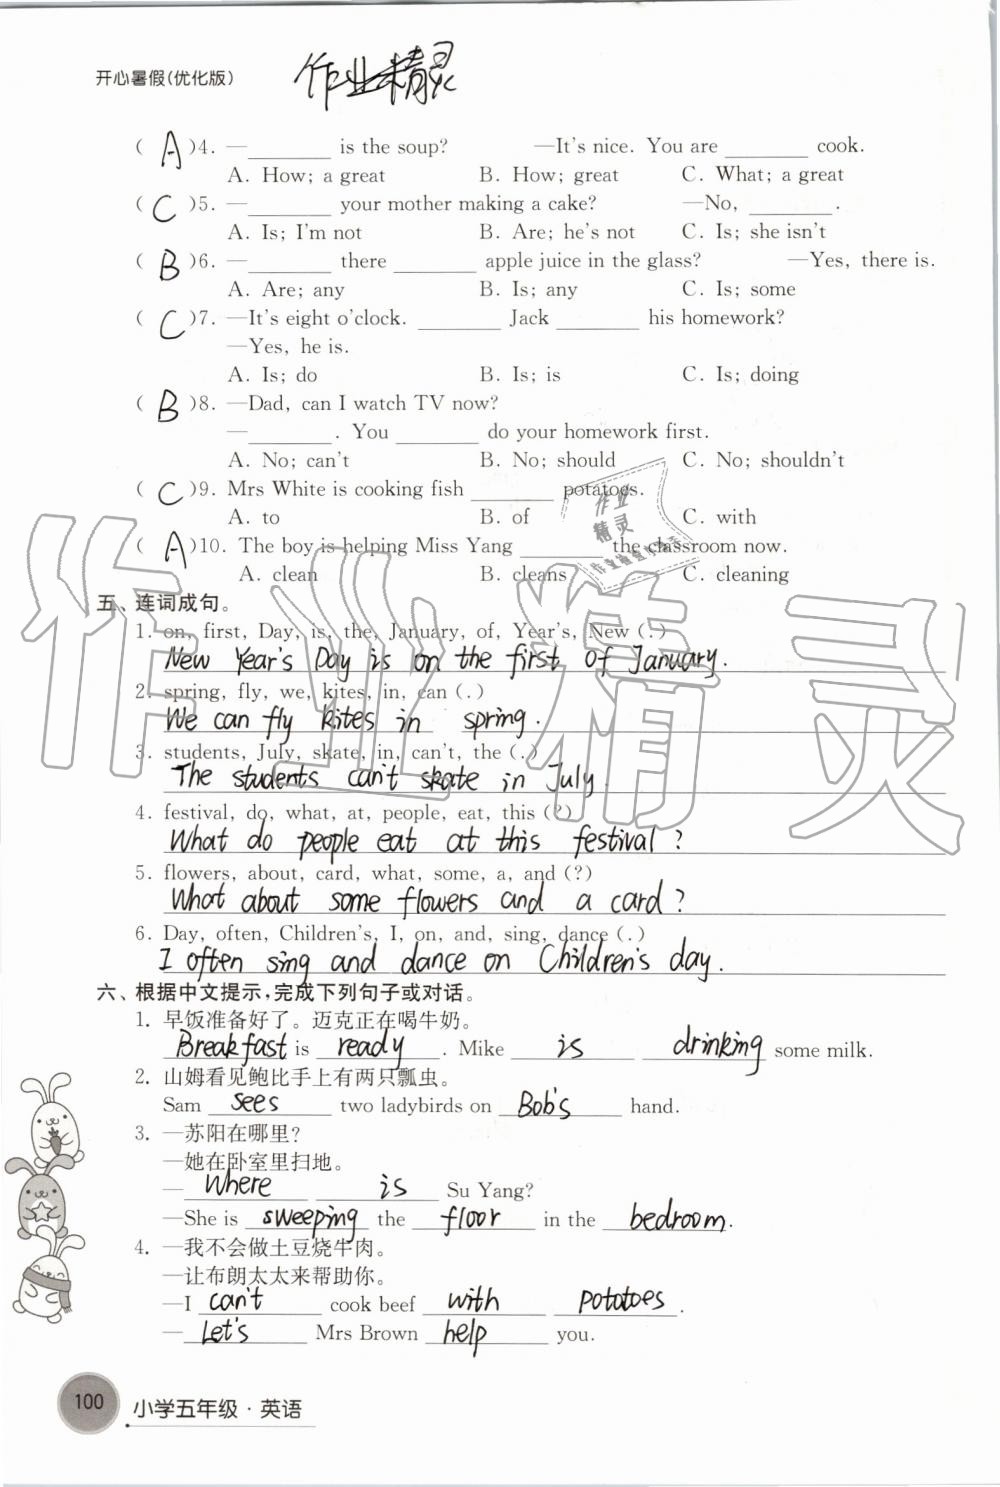 开心暑假(优化版)
作业精灵
( A )4. —________ is the soup? —It's nice. You are ________ cook.
A. How; a great B. How; great C. What; a great
( C )5. —________ your mother making a cake? —No, ________.
A. Is; I'm not B. Are; he's not C. Is; she isn't
( B )6. —________ there ________ apple juice in the glass? —Yes, there is.
A. Are; any B. Is; any C. Is; some
( C )7. —It's eight o'clock. ________ Jack ________ his homework?
—Yes, he is.
A. Is; do B. Is; is C. Is; doing
( B )8. —Dad, can I watch TV now?
—________. You ________ do your homework first.
A. No; can't B. No; should C. No; shouldn't
( C )9. Mrs White is cooking fish ________ potatoes.
A. to B. of C. with
( A )10. The boy is helping Miss Yang ________ the classroom now.
A. clean B. cleans C. cleaning
五、连词成句。
1. on, first, Day, is, the, January, of, Year's, New (.)
New Year's Day is on the first of January.
2. spring, fly, we, kites, in, can (.)
We can fly kites in spring.
3. students, July, skate, in, can't, the (.)
The students can't skate in July.
4. festival, do, what, at, people, eat, this (?)
What do people eat at this festival?
5. flowers, about, card, what, some, a, and (?)
What about some flowers and a card?
6. Day, often, Children's, I, on, and, sing, dance (.)
I often sing and dance on Children's day.
六、根据中文提示,完成下列句子或对话。
1. 早饭准备好了。迈克正在喝牛奶。
Breakfast is ready. Mike is drinking some milk.
2. 山姆看见鲍比手上有两只瓢虫。
Sam sees two ladybirds on Bob's hand.
3. —苏阳在哪里?
—她在卧室里扫地。
—Where is Su Yang?
—She is sweeping the floor in the bedroom.
4. —我不会做土豆烧牛肉。
—让布朗太太来帮助你。
—I can't cook beef with potatoes.
—Let's Mrs Brown help you.
100 小学五年级·英语
作业精灵
作业
精灵